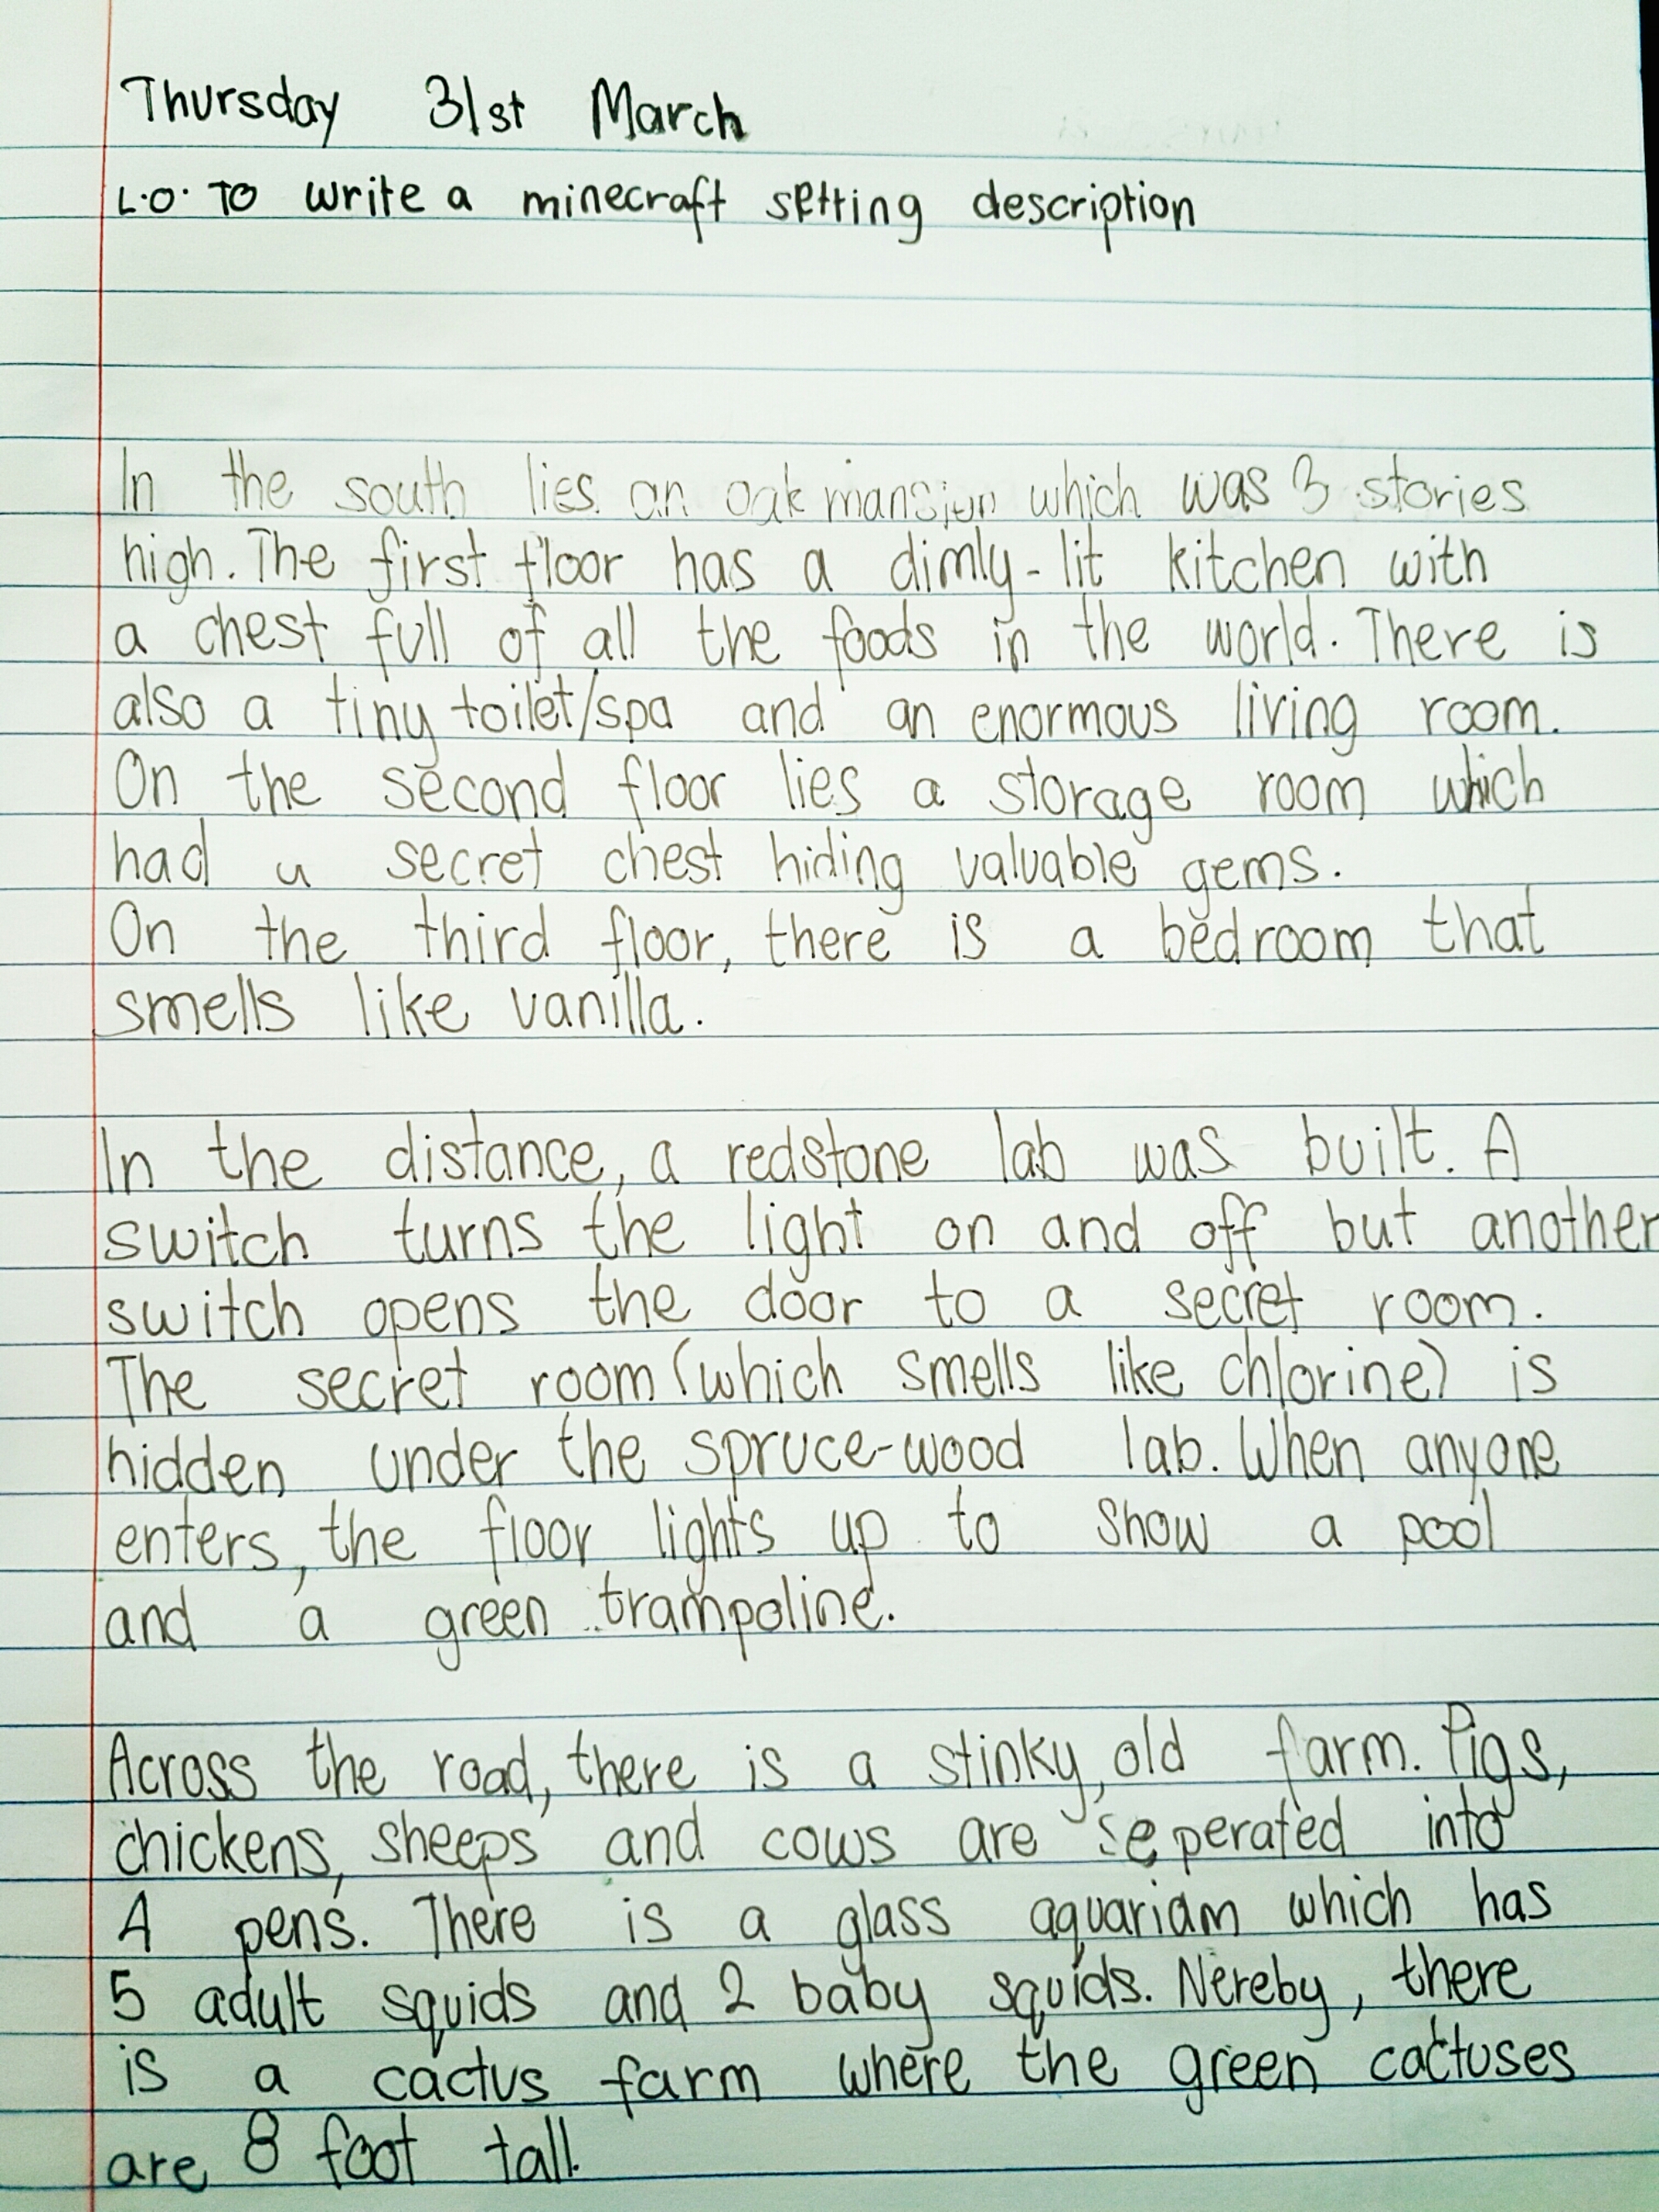 Thursday 31st March
L.O. TO write a minecraft setting description
In the south lies an oak mansion which was 3 stories
high. The first floor has a dimly-lit kitchen with
a chest full of all the foods in the world. There is
also a tiny toilet/spa and an enormous living room.
On the second floor lies a storage room which
had a secret chest hiding valuable gems.
On the third floor, there is a bedroom that
smells like vanilla.
In the distance, a redstone lab was built. A
switch turns the light on and off but another
switch opens the door to a secret room.
The secret room (which smells like chlorine) is
hidden under the spruce-wood lab. When anyone
enters, the floor lights up to show a pool
and a green trampoline.
Across the road, there is a stinky, old farm. Pigs,
chickens, sheeps and cows are seperated into
4 pens. There is a glass aquariam which has
5 adult squids and 2 baby squids. Nereby, there
is a cactus farm where the green cactuses
are 8 foot tall.